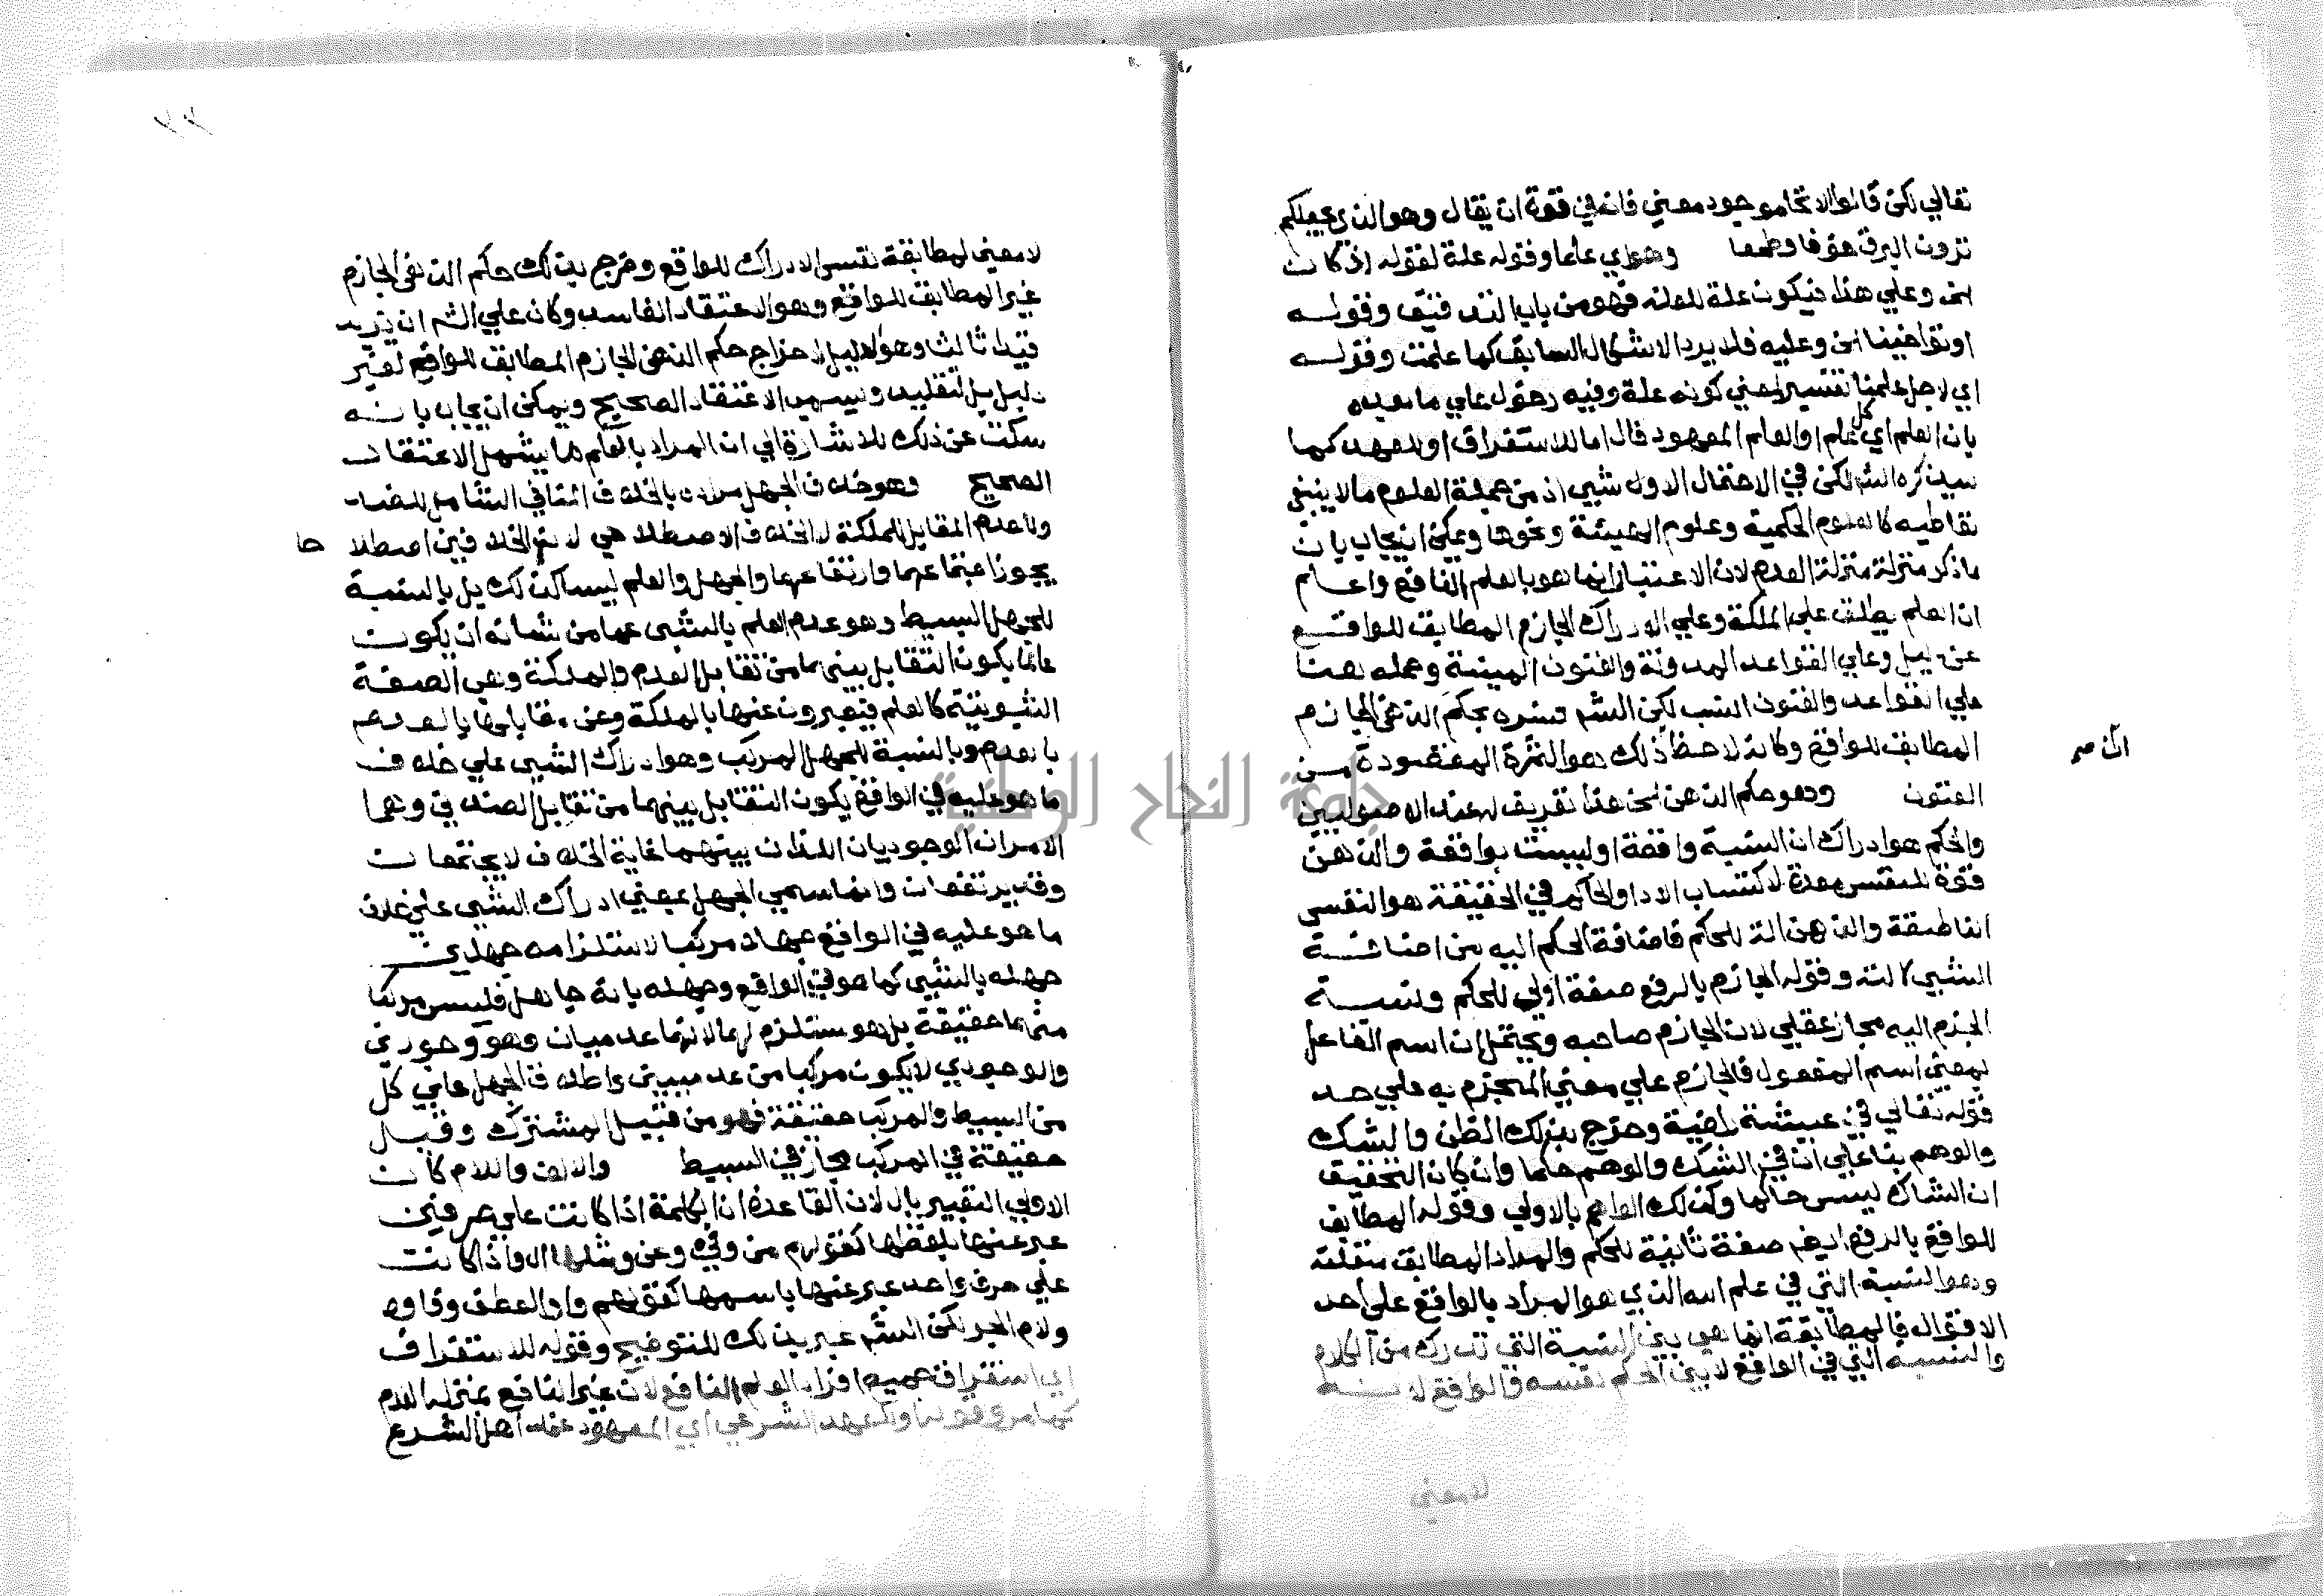 تعالي لكن قالوا الاتحاد موجود معني فانه في قوة ان يقال وهو الذي يجعلكم
ترون البرق خوفا وطمعا وهواي علما وقوله علة لقوله اذ كانت
الخ وعلي هذا فيكون علة للعلة فهو من باب التدقيق وقوله
او تواخينا الخ وعليه فلا يرد الاشكال السابق كما علمت وقوله
اي لاجل علمنا تفسير لمعني كونه علة وفيه دخول علي ما بعده
بان العلم اي كل علم او العلم المعهود فال اما للاستغراق او للعهد كما
سيذكره الشم لكن في الاحتمال الاول شيي اذ من جملة العلوم ما لا ينبغي
تعاطيه كالعلوم الحكمية وعلوم الهيئة ونحوها ويمكن ان يجاب بان
ما ذكر منزل منزلة العدم لان الاعتبار انما هو بالعلم النافع واعلم
ان العلم يطلق علي الملكة وعلي الادراك الجازم المطابق للواقع
عن دليل وعلي القواعد المدونة والفنون المبينة وحمله هنا
علي القواعد والفنون انسب لكن الشم فسره بحكم الذهن الجازم
المطابق للواقع وكانه لاحظ ان ذلك هو الثمرة المقصودة من
الفنون وهو حكم الذهن الخ هذا تعريف له عند الاصوليين
والحكم هو ادراك ان النسبة واقعة او ليست بواقعة والذهن
قوة للنفس معدة لاكتساب الاراء والحاكم في الحقيقة هو النفس
الناطقة والذهن الة للحكم فاضافة الحكم اليه من اضافة
الشيي لالته وقوله الجازم بالرفع صفة اولي للحكم ونسبة
الجزم اليه مجاز عقلي لان الجازم صاحبه ويحتمل ان اسم الفاعل
بمعني اسم المفعول فالجازم علي معني المجزم به علي حد
قوله تعالي في عيشة راضية وخرج بذلك الظن والشك
والوهم بنا علي ان في الشك والوهم حكما وان كان التحقيق
ان الشاك ليس حاكما وكذلك الواهم بالاولي وقوله المطابق
للواقع بالرفع ايضم صفة ثانية للحكم والمراد المطابق متعلقه
وهو النسبة التي في علم الله الذي هو المراد بالواقع علي احد
الاقوال فالمطابقة انما هي بين النسبة التي تدرك من الكلام
والنسبة التي في الواقع لا بين الحكم نفسه والواقع لانه
لا معني
لا معني لمطابقة نفس الادراك للواقع وخرج بذلك حكم الذهن الجازم
غير المطابق للواقع وهو الاعتقاد الفاسد وكان علي الشم ان يزيد
قيدا ثالثا وهو لدليل لاخراج حكم الذهن الجازم المطابق للواقع لغير
دليل بل لتقليد ويسمي الاعتقاد الصحيح ويمكن ان يجاب بانه
سكت عن ذلك للاشارة الي ان المراد بالعلم ما يشمل الاعتقاد
الصحيح وهو خلاف الجهل مراده بالخلاف التنافي الشامل للضد
ولعدم المقابل للملكة لا الخلاف الاصطلاحي لان الخلافين اصطلاحا
يجوز اجتماعهما وارتفاعهما والجهل والعلم ليسا كذلك بل بالنسبة
للجهل البسيط وهو عدم العلم بالشيي عما من شانه ان يكون
عالما يكون التقابل بينهما من تقابل العدم والملكة وهي الصفة
الثبوتية كالعلم فيعبرون عنها بالملكة وعن مقابلها بالعدم
بالعدم وبالنسبة للجهل المركب وهو ادراك الشيي علي خلاف
ما هو عليه في الواقع يكون التقابل بينهما من تقابل الضدين وهما
الامران الوجوديان اللذان بينهما غاية الخلاف لا يجتمعان
وقد يرتفعان وانما سمي الجهل بمعني ادراك الشيي علي خلاف
ما هو عليه في الواقع جهلا مركبا لاستلزامه جهلين
جهله بالشيي كما هو في الواقع وجهله بانه جاهل فليس مركبا
منهما حقيقة بل هو مستلزم لهما لانهما عدميان وهو وجودي
والوجودي لا يكون مركبا من عدميين واطلاق الجهل علي كل
من البسيط والمركب حقيقة فهو من قبيل المشترك وقيل
حقيقة في المركب مجاز في البسيط والالف واللام كان
الاولي التعبير بال لان القاعدة ان الكلمة اذا كانت علي حرفين
عبر عنها بلفظها كقولهم من وفي وعن ومثلها ال واذا كانت
علي حرف واحد عبر عنها باسمها كقولهم واو العطف وفاوه
ولام الجر لكن الشم عبر بذلك للتوضيح وقوله للاستغراق
اي استغراق جميع افراد العلم النافع لان غير النافع بمنزلة العدم
كما مر وقوله او للعهد الشرعي اي المعهود عند اهل الشرع